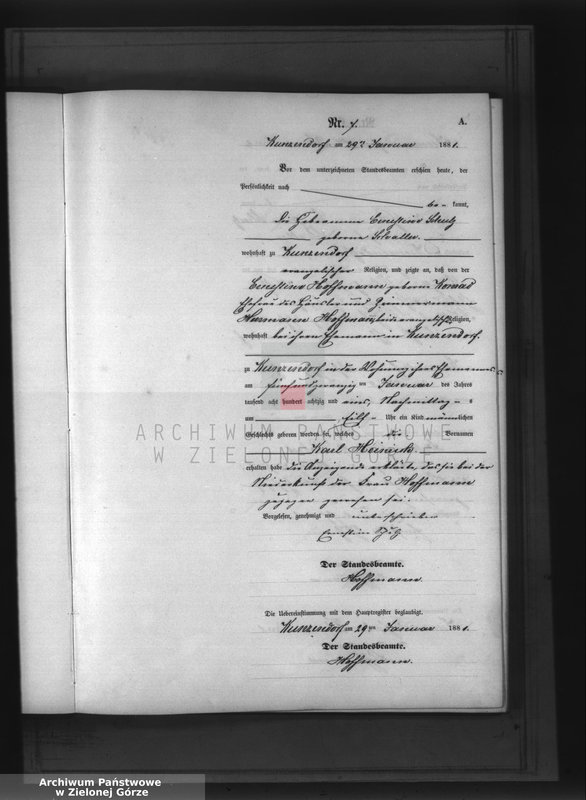 Nr. 7. A.
Kunzendorf am 29ten Januar 1881.
Vor dem unterzeichneten Standesbeamten erschien heute, der
Persönlichkeit nach
be= kannt,
die Hebamme Ernestine Schulz
geborne
wohnhaft zu Kunzendorf
evangelischer Religion, und zeigte an, daß von der
Ernestine Hoffmann geborne Konrad
Ehefrau des Häusler und Zimmermann
Hermann Hoffmann, beide evangelisch Religion,
wohnhaft bei ihrem Ehemann in Kunzendorf.
zu Kunzendorf in der Wohnung ihres Ehemannes
am fünfundzwanzig ten Januar des Jahres
tausend acht hundert achtzig und eins, Nachmittag =s
um eilf Uhr ein Kind männlichen
Geschlechts geboren worden sei, welches die Vornamen
Karl Heinrich
erhalten habe die Anzeigende erklärte, das sie bei der
Niederkunft der Frau Hoffmann
zugegen gewesen sei.
Vorgelesen, genehmigt und unterschrieben
Ernestine Schulz
Der Standesbeamte.
Hoffmann.
Die Uebereinstimmung mit dem Hauptregister beglaubigt.
Kunzendorf am 29ten Januar 1881.
Der Standesbeamte.
Hoffmann.
ARCHIWUM PAŃSTWOWE
W ZIELONEJ GÓRZE
Archiwum Państwowe
w Zielonej Górze